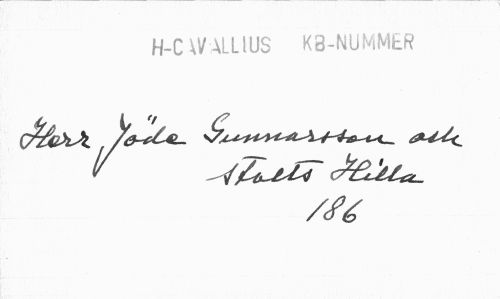 H-CAVALLIUS KB-NUMMER
Herr Jöde Gunnarsson och
stolts Hilla
186